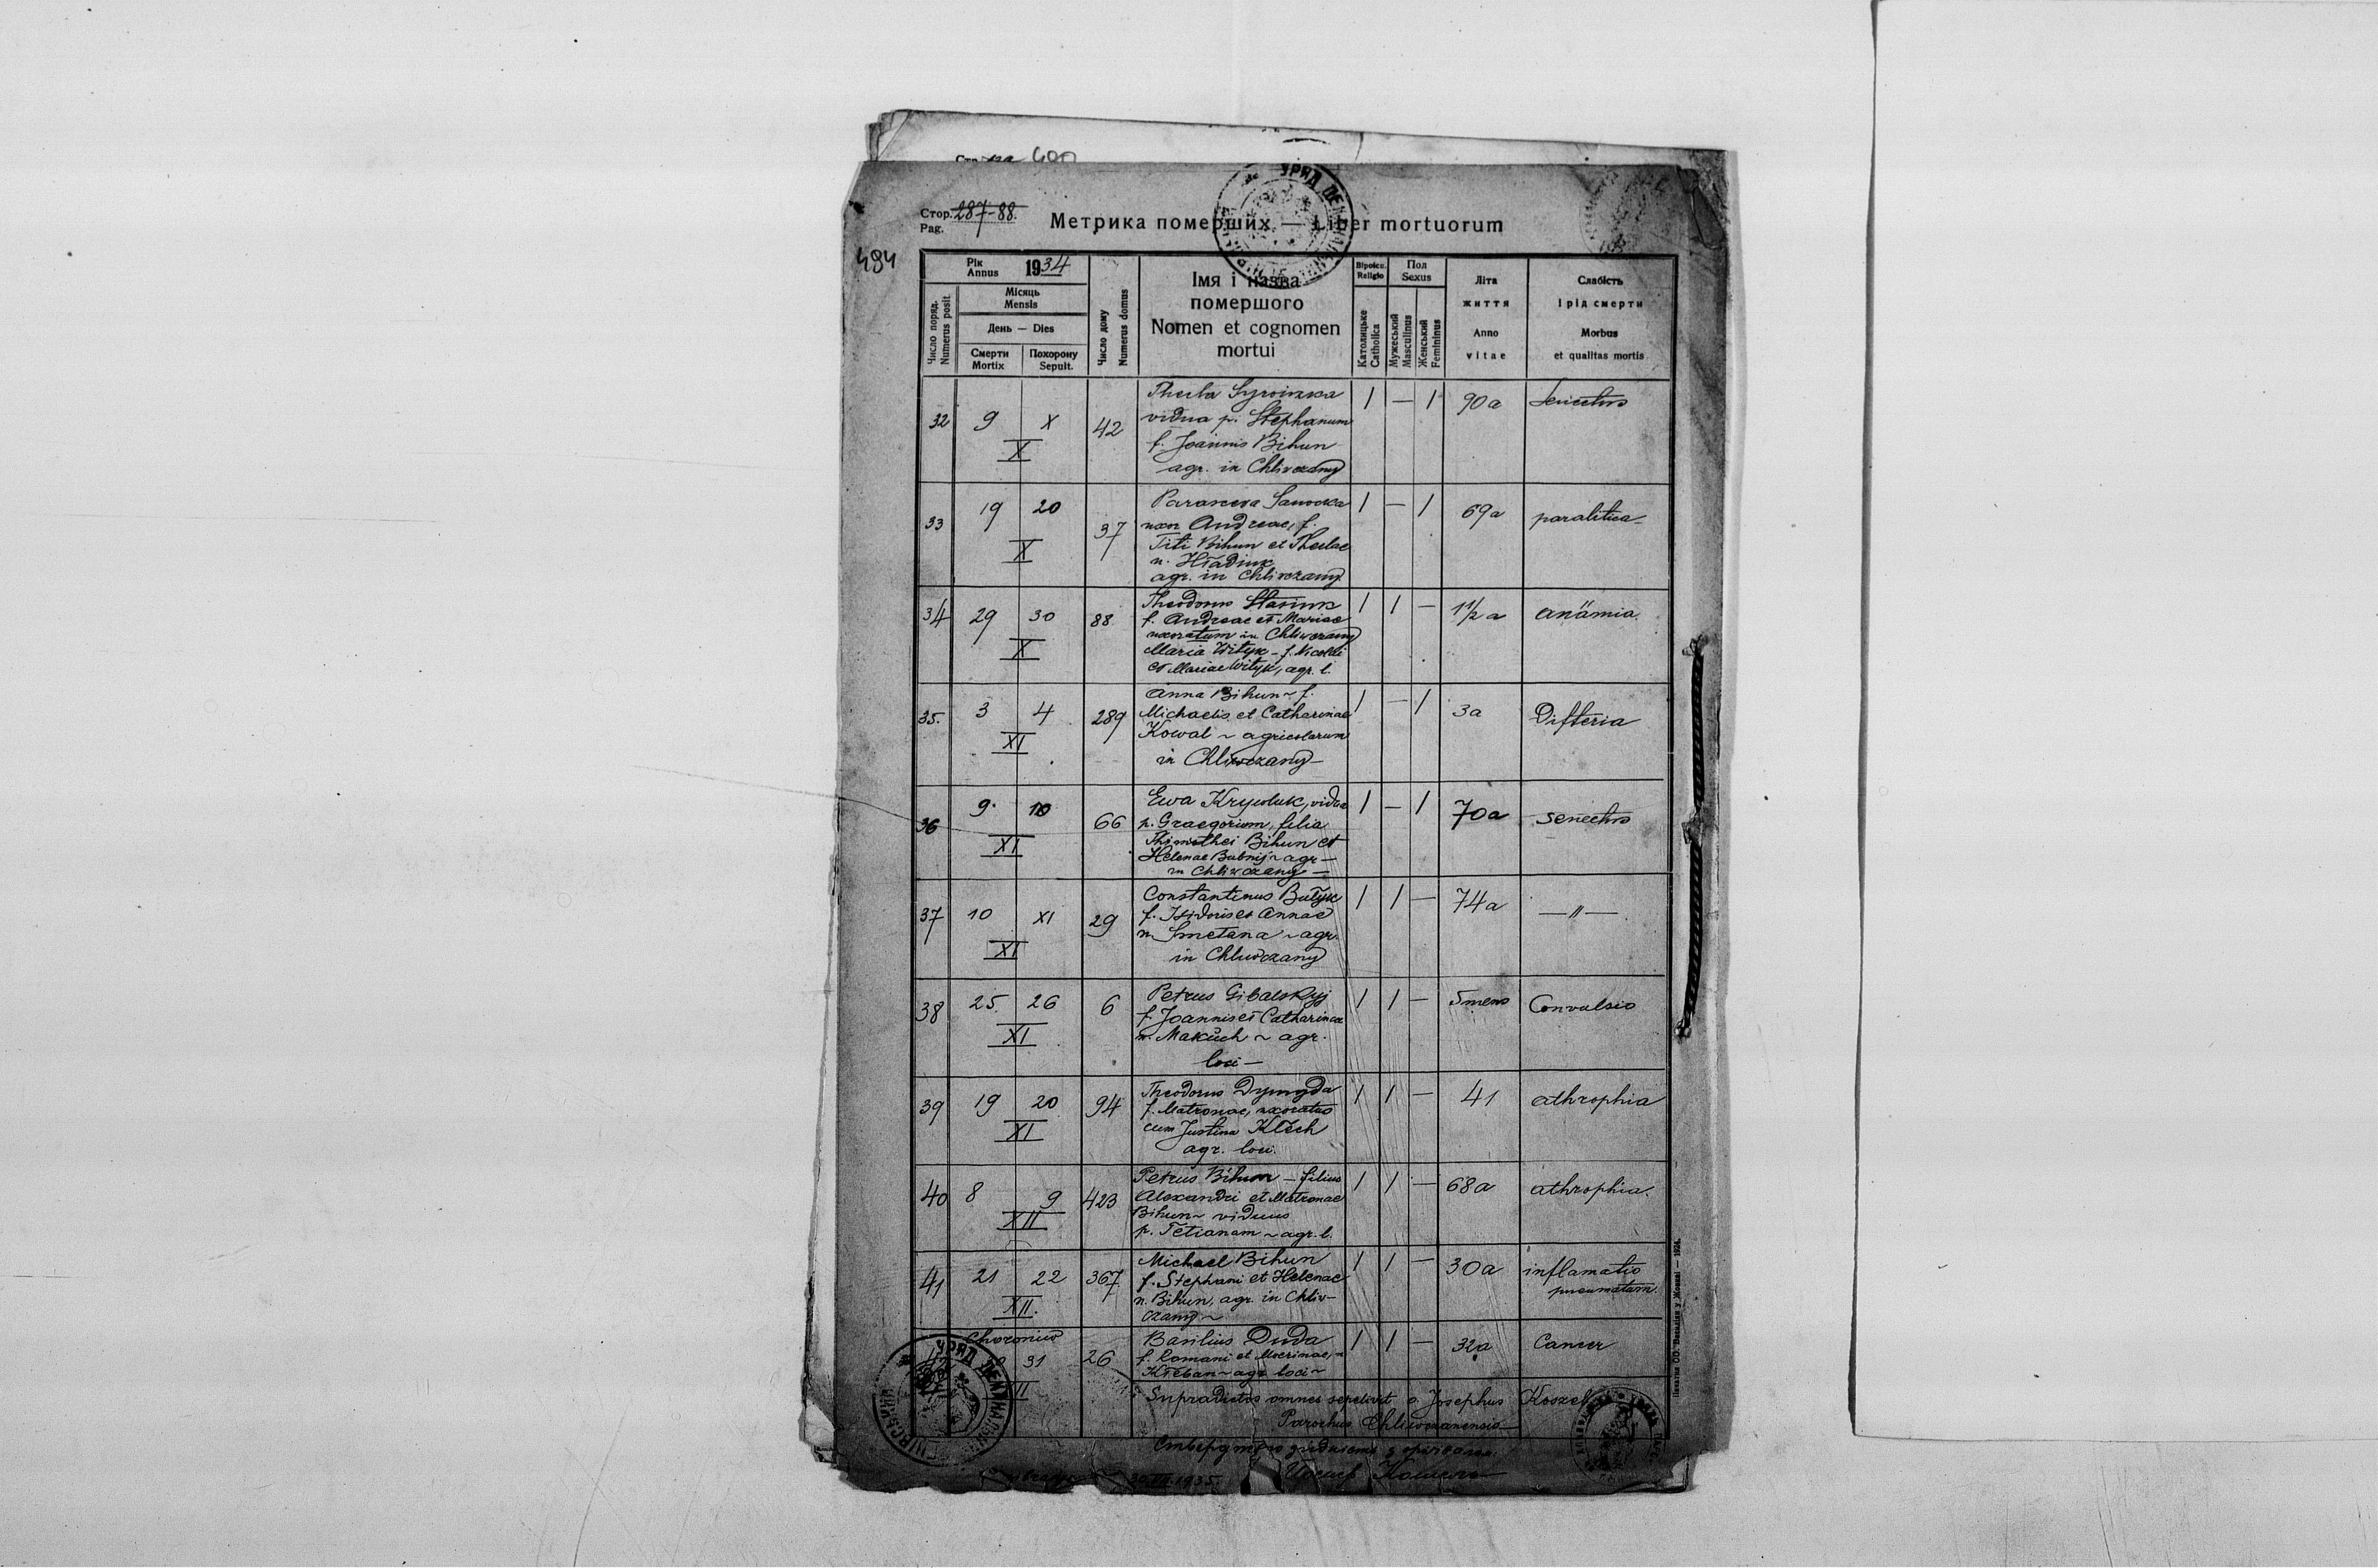 Стор. 287-88.
Pag.
Метрика померших — Liber mortuorum
494
Рік
Annus
1934
Місяць
Mensis
День — Dies
Смерти
Mortix
Похорону
Sepult.
Число поряд.
Numerus posit.
Число дому
Numerus domus
Імя і назва
помершого
Nomen et cognomen
mortui
Віроісп.
Religio
Католицьке
Catholica
Пол
Sexus
Мужеський
Masculinus
Женський
Femininus
Літа
життя
Anno
vitae
Слабість
і рід смерти
Morbus
et qualitas mortis
32 9 X 42
X
Thecla
vidua p. Stephanum
f. Joannis Bihun
agr. in Chliwczany
1 — 1 90 a
33 19 20 37
X
uxor Andreae, f.
Titi Bihun et Theclae
n. Hładiuk
agr. in Chliwczany
1 — 1 69 a paralitica
34 29 30 88
X
Theodorus Stasiuk
f. Andreae et Mariae
uxoratum in Chliwczany
Maria Wityk - f. Nicolai
et Mariae Wityk, agr. l.
1 1 — 1 1/2 a anämia
35. 3 4 289
XI
Anna Bihun ~ f.
Michaelis et Catharinae
Kowal ~ agricolarum
in Chliwczany —
1 — 1 3a Difteria
36 9. 10 66
XI
Ewa Krywluk, vidua
p. Graegorium, filia
Thimothei Bihun et
Helenae Bubnij ~ agr —
in Chliwczany —
1 — 1 70a senectus
37 10 XI 29
XI
Constantinus Bułyk
f. Isidoris et Annae
n. Smetana ~ agr.
in Chliwczany
1 1 — 74a — " —
38 25 26 6
XI
Petrus Gibalskyj
f. Joannis et Catharinae
n. Makuch ~ agr.
loci —
1 1 — 5 mens Convulsio
39 19 20 94
XI
Theodorus Dymyda
f. Matronae, uxoratus
cum Justina Klech
agr. loci.
1 1 — 41 athrophia
40 8 9 423
XII
Petrus Bihun — filius
Alexandri et Matronae
Bihun ~ viduus
p. Tetianam ~ agr. l.
1 1 — 68a athrophia.
41 21 22 367
XII.
Michael Bihun
f. Stephani et Helenae
n. Bihun, agr. in Chliw-
czany ~
1 1 — 30a inflamatio
pneumatum.
31 26
Basilius Duda
f. Romani et Macrinae, n
Kłeban ~ agr loci ~
1 1 — 32a Cancer
Supradictos omnes sepelivit o. Josephus Koszel
Parochus Chliwczanensis
30.VII.1935. Йосиф
Печатня ОО. Василіян у Жовкві — 1924.
УРЯД ДЕКАНАЛЬНИЙ
УРЯД ДЕКАНАЛЬНИЙ